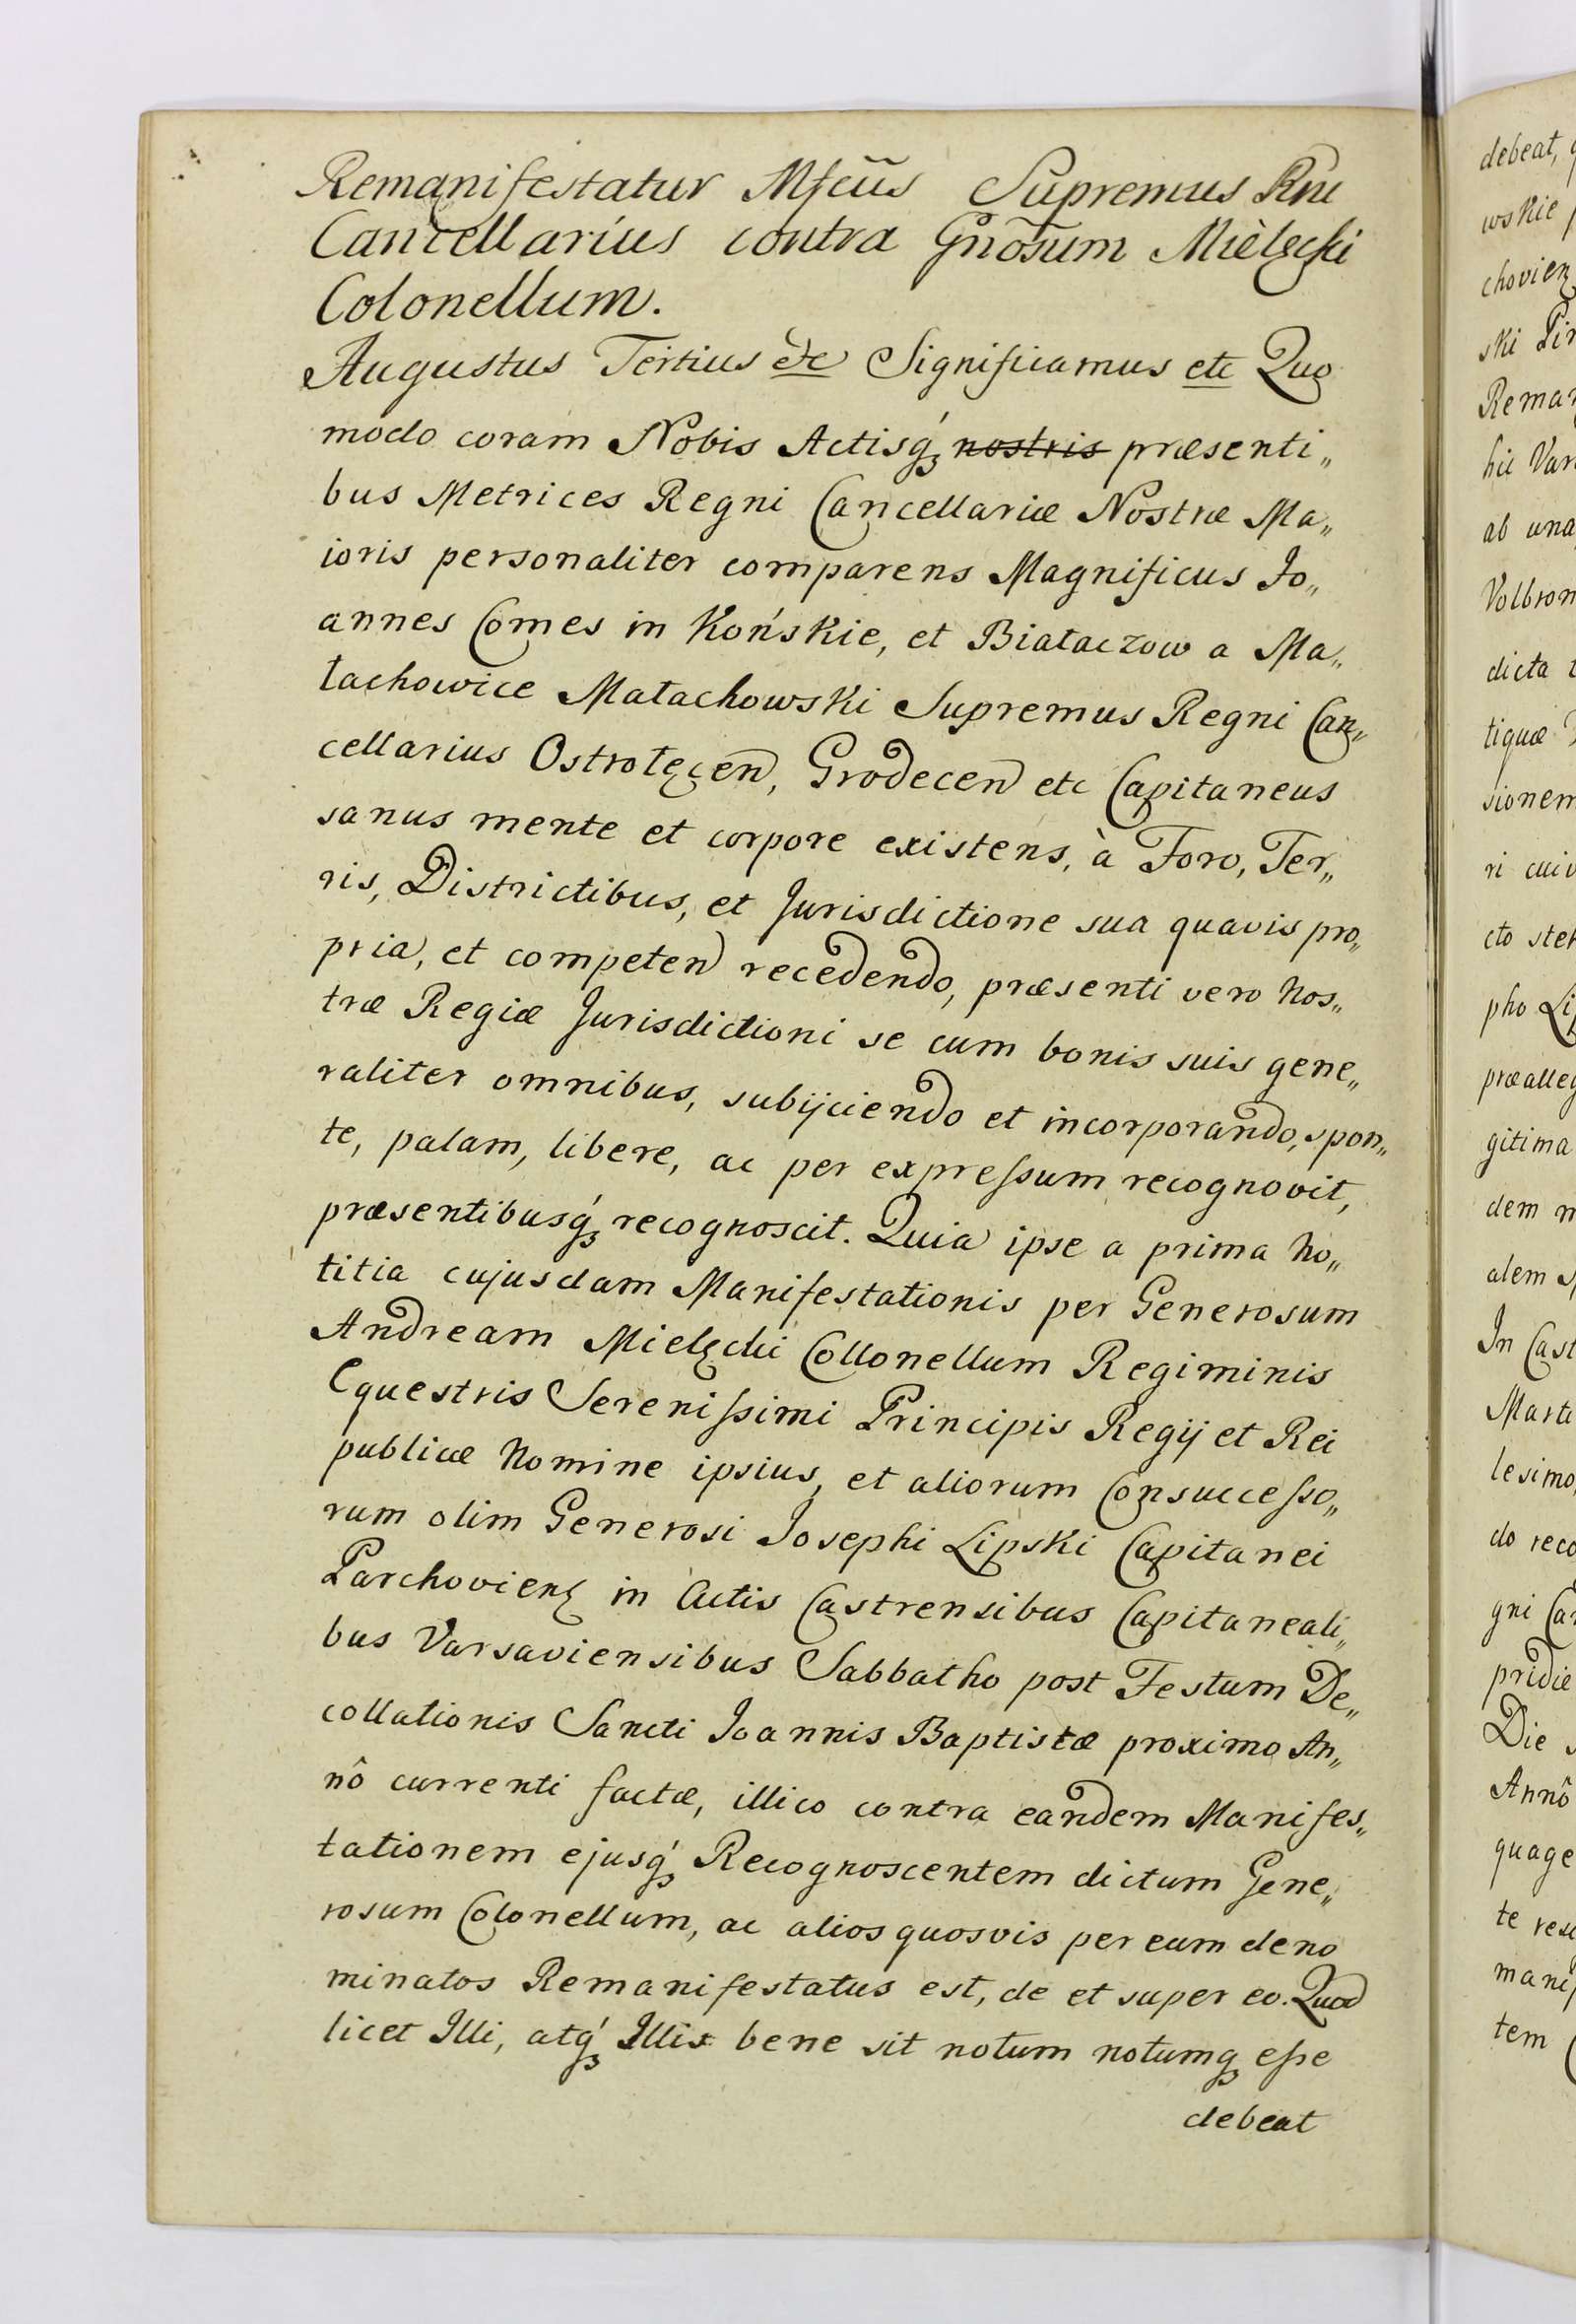 Remanifestatur Mfcus̄ Supremus Rni
Cancellarius contra Gnōsum Mielęcki
Colonellum.
Augustus Tertius etc Significamus etc Quo
modo coram Nobis Actisq́ꝫ nostris præsenti„
bus Metrices Regni Cancellariæ Nostræ Ma„
ioris personaliter comparens Magnificus Jo„
annes Comes in Końskie, et Białaczow a Ma„
łachowice Małachowski Supremus Regni Can„
cellarius Ostrołęcen̄, Grodecen̄ etc Capitaneus
sanus mente et corpore existens, à Foro, Ter„
ris, Districtibus, et Jurisdictione sua quavis pro„
pria, et competen̄ recedendo, præsenti vero Nos„
træ Regiæ Jurisdictioni se cum bonis suis gene„
raliter omnibus, subijciendo et incorporando, spon„
te, palam, libere, ac per expreſsum recognovit,
præsentibusq́ꝫ recognoscit. Quia ipse a prima No„
titia cujusdam Manifestationis per Generosum
Andream Mielęcki Collonellum Regiminis
Equestris Sereniſsimi Principis Regij et Rei
publicæ Nomine ipsius, et aliorum Consucceſso„
rum olim Generosi Josephi Lipski Capitanei
Parchovienꝫ in Actis Castrensibus Capitaneali„
bus Varsaviensibus Sabbatho post Festum De„
collationis Sancti Joannis Baptistæ proximo An„
nô currenti factæ, illico contra eandem Manifes„
tationem ejusq́ꝫ Recognoscentem dictum Gene„
rosum Colonellum, ac alios quosvis per eum deno
minatos Remanifestatus est, de et super eo. Quod
licet Illi, atq́ꝫ Illis bene sit notum notumqꝫ eſse
debeat
debeat,
wskie
chovienꝫ
ski
Reman
hic Var
ab una
Volbrom
dicta
tiquæ
sionem
ri cuiv
cto ster
pho Lip
præalleg
gitima
dem
alem
In Cast
Marti
lesimo,
do reco
gni Can
pridie
Die
Annô
quage
te res
manif
tem